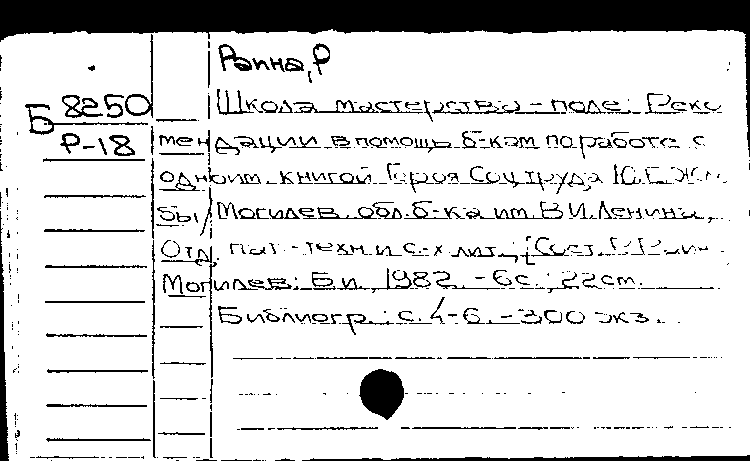 Раина, Р
Б 8250
Р-18
Школа мастерства - поле: Реко
мендации в помощь б-кам по работе с
одноим. книгой Героя Соц. труда Ю.Е.
бы / Могилев. обл. б-ка им. В.И. Ленина,
Отд. пат.-техн и с-х лит.; [Сост.
Могилев: Б.и., 1982. - 6с.; 22см.
Библиогр.: с. 4-6. - 300 экз.